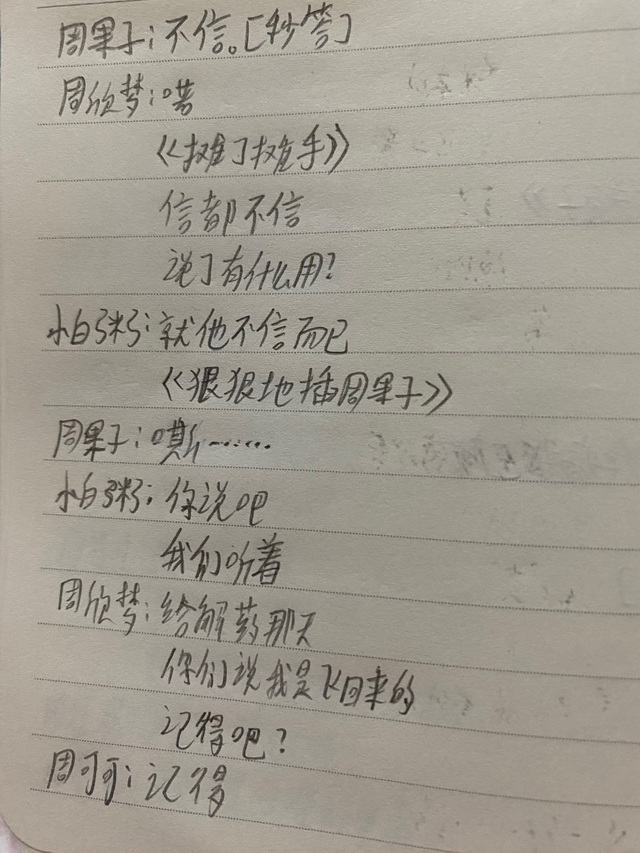 周果子：不信。[秒答]
周欣梦：喏
《摊了摊手》
信都不信
说了有什么用？
小白粥：就他不信而已
《狠狠地插周果子》
周果子：嘶……
小白粥：你说吧
我们听着
周欣梦：给解药那天
你们说我是飞回来的
记得吧？
周可可：记得